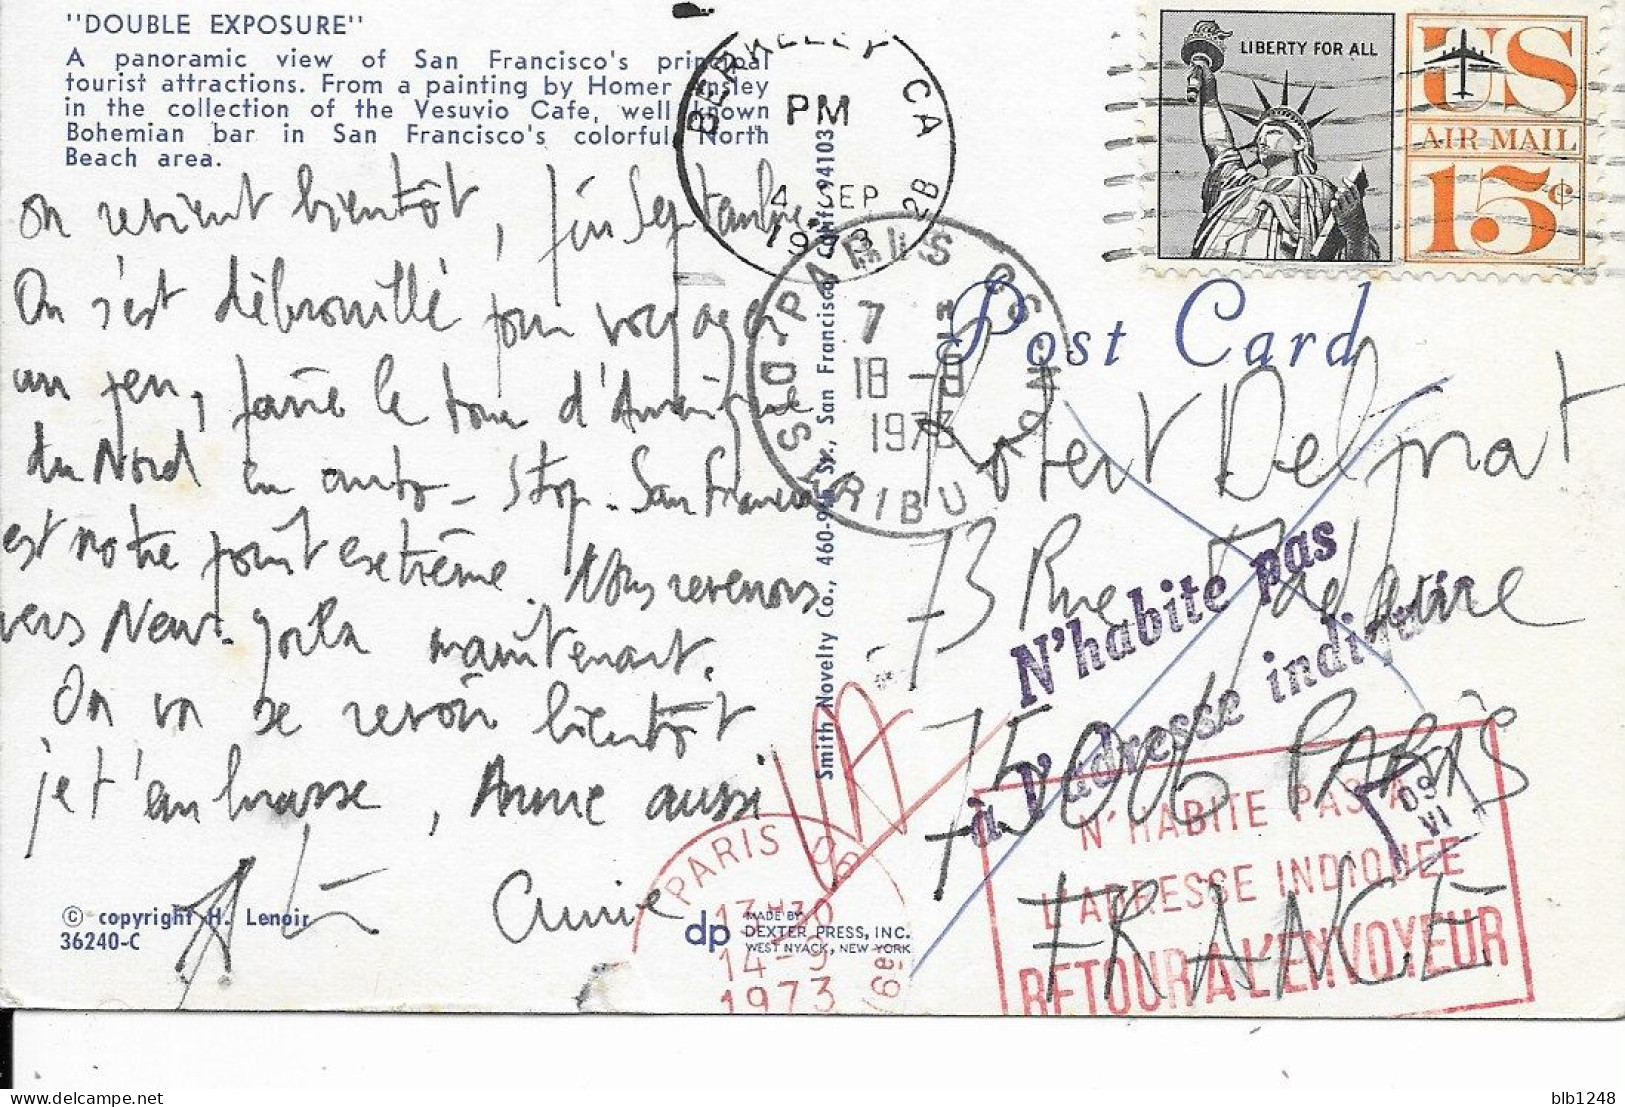 "DOUBLE EXPOSURE"
A panoramic view of San Francisco's principal
tourist attractions. From a painting by Homer Ansley
in the collection of the Vesuvio Cafe, well known
Bohemian bar in San Francisco's colorful North
Beach area.
on revient bientôt, fin Septembre.
On s'est débrouillé pour voyager
un peu, faire le tour d'Amérique
du Nord en auto-Stop. San Francisco
est notre point extrême. Nous revenons
vers New-York maintenant.
On va se revoir bientôt
je t'embrasse, Annie aussi
Annie
© copyright H. Lenoir
36240-C
dp MADE BY
DEXTER PRESS, INC.
WEST NYACK, NEW YORK
Smith Novelty Co., 460-9th St., San Francisco, Calif. 94103
BERKELEY CA
PM
4 SEP
1973
2B
PARIS
7
18 -9
1973
DISTRIBUTION
LIBERTY FOR ALL
US
AIR MAIL
15¢
Post Card
Robert Delprat
73 Rue Madame
75006 PARIS
FRANCE
N'habite pas
à l'adresse indiquée
N'HABITE PAS A
L'ADRESSE INDIQUEE
RETOUR A L'ENVOYEUR
09
VI
PARIS 06
14-9
1973
(6e)
blb1248